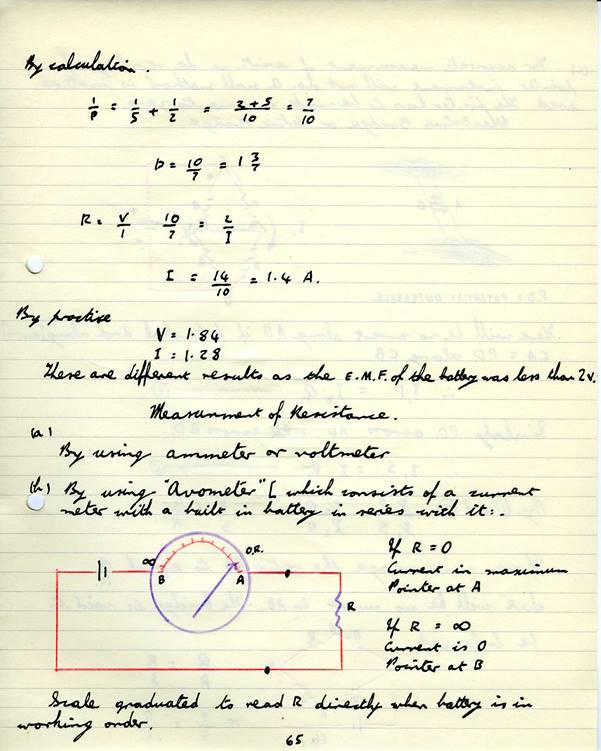 By calculation.
1/P = 1/5 + 1/2 = 2+5/10 = 7/10
D = 10/7 = 1 3/7
R = V/I 10/7 = 2/I
I = 14/10 = 1.4 A.
By practise
V = 1.84
I = 1.28
There are different results as the E.M.F. of the battery was less than 2v.
Measurement of Resistance.
(a)
By using ammeter or voltmeter
(b) By using "Avometer" [ which consists of a current
meter with a built in battery in series with it:-
∞ O.R.
B A
R
If R = 0
Current in maximum
Pointer at A
If R = ∞
Current is 0
Pointer at B
Scale graduated to read R directly when battery is in
working order.
65